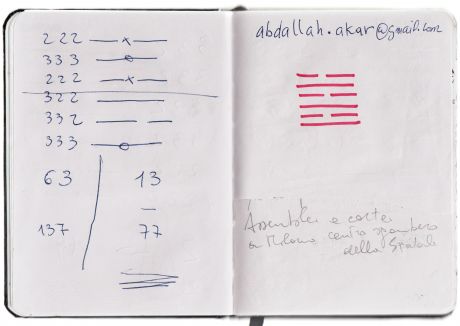 222
333
222
322
332
333
63 13
137 77
abdallah.akar@gmail.com
e cortei
Milano sgombero
della